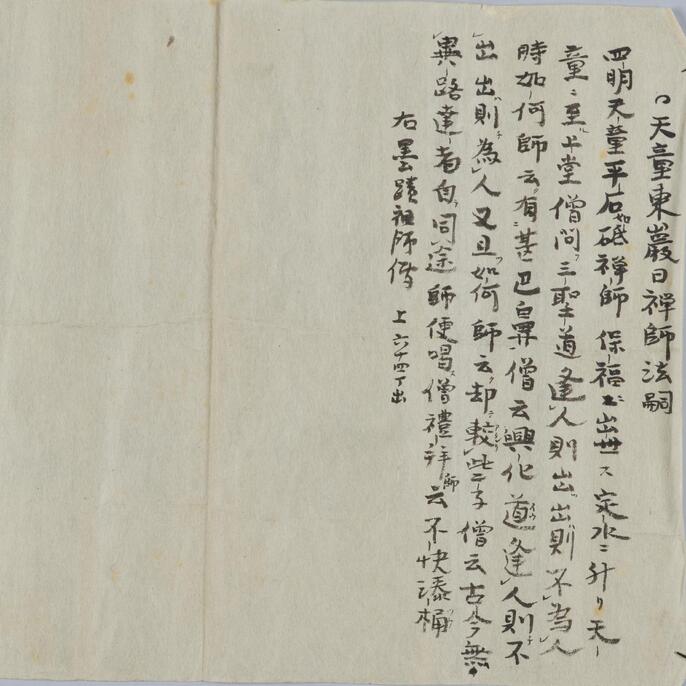 ○天童東巖日禅師法嗣
四明天童平石砥禅師 保福ニ出世ス定水ニ升リ天
童ニ至ル上堂僧問フ三聖道逢人則出出則不為人
時如何師云有甚巴鼻僧云興化道逢人則不
出出則為人又且如何師云却較些子僧云古今無
異路達者自同途師便喝僧禮拜師云不快漆桶
右墨蹟祖師傳 上六十四丁出